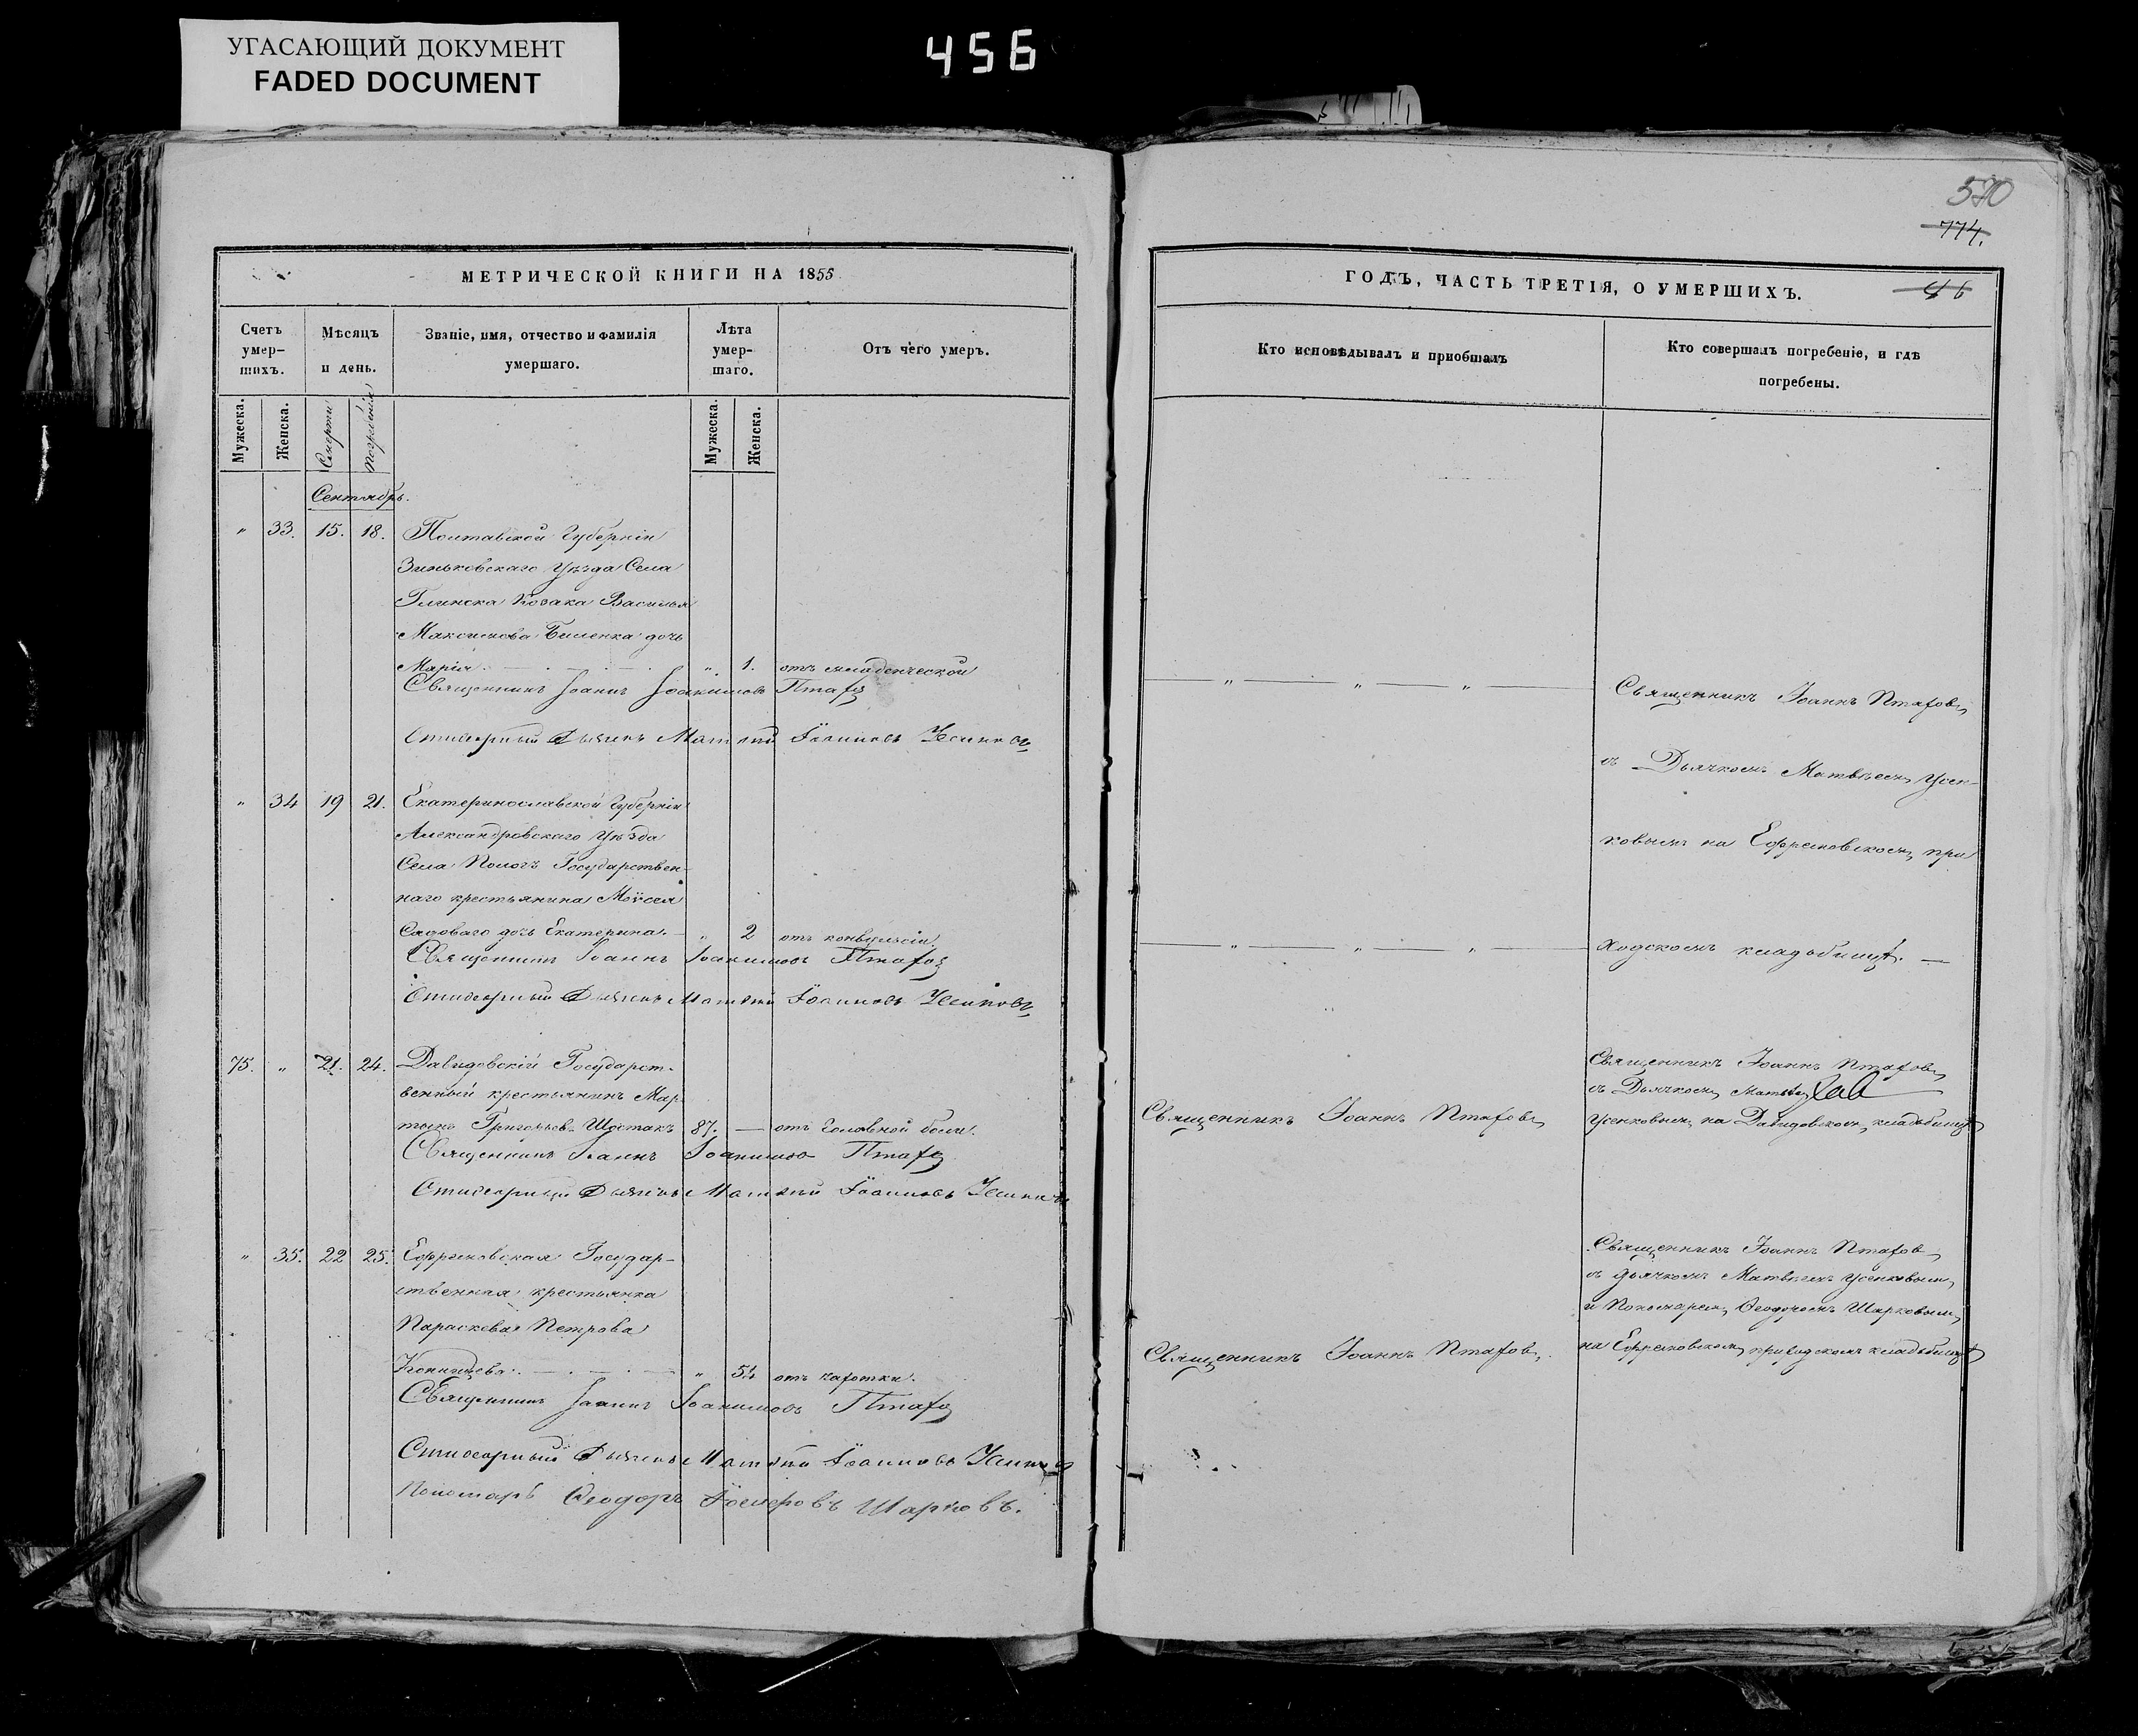 УГАСАЮЩИЙ ДОКУМЕНТ
FADED DOCUMENT
456
570
774.
46
МЕТРИЧЕСКОЙ КНИГИ НА 1855
Счетъ умер-шихъ.
Мѣсяцъ и день.
Званіе, имя, отчество и фамилія умершаго.
Лѣта умер-шаго.
Отъ чего умеръ.
Мужеска.
Женска.
Смерти
Погребенія
Мужеска.
Женска.
Сентябрь.
" 33. 15. 18. Полтавской Губерніи
Зиньковскаго Уѣзда Села
Глинска Козака Василья
Максимова Биленка дочь
Марія. " 1. отъ младенческой
Священникъ Іоаннъ Іоакимовъ Птаховъ
Стихарный Дьячекъ Матвѣй Іоанновъ Усенковъ
" 34 19 21. Екатеринославской Губерніи
Александровскаго Уѣзда
Села Пологъ Государствен-
наго крестьянина Моѵсея
Садоваго дочь Екатерина. " 2 отъ конвульсіи.
Священникъ Іоаннъ Іоакимовъ Птаховъ
Стихарный Дьячекъ Матвѣй Іоанновъ Усенковъ
75. " 21. 24. Давидовскій Государст-
венный крестьянинъ Мар-
тынъ Григорьевъ Шостакъ 87. — отъ головной боли.
Священникъ Іоаннъ Іоакимовъ Птаховъ
Стихарный Дьячекъ Матвѣй Іоанновъ Усенковъ
" 35. 22 25. Ефремовская Государ-
ственная крестьянка
Параскева Петрова
" 54 отъ чахотки.
Священникъ Іоаннъ Іоакимовъ Птаховъ
Стихарный Дьячекъ Матвѣй Іоанновъ Усенковъ
Пономарь Ѳеодоръ Шарковъ.
ГОДЪ, ЧАСТЬ ТРЕТІЯ, О УМЕРШИХЪ.
Кто исповѣдывалъ и пріобщалъ
Кто совершалъ погребеніе, и гдѣ погребены.
" " " Священникъ Іоаннъ Птаховъ
съ Дьячкомъ Матвѣемъ Усен-
ковымъ на Ефремовскомъ при
" " " ходскомъ кладбищѣ. —
Священникъ Іоаннъ Птаховъ
съ Дьячкомъ Матвѣемъ
Священникъ Іоаннъ Птаховъ Усенковымъ на Давидовскомъ кладбищѣ
Священникъ Іоаннъ Птаховъ
съ Дьячкомъ Матвѣемъ Усенковымъ
и Пономаремъ Ѳеодоромъ Шарковымъ
Священникъ Іоаннъ Птаховъ на Ефремовскомъ приходскомъ кладбищѣ